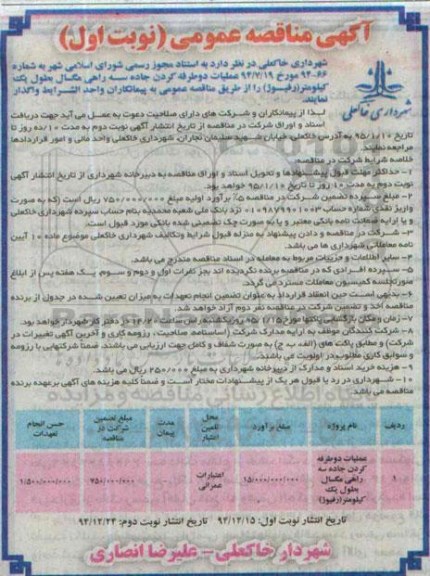 آگهی مناقصه عمومی (نوبت اول)
شهرداری خاکعلی در نظر دارد به استناد مجوز رسمی شورای اسلامی شهر به شماره
۹۴-۶۶ مورخ ۹۴/۷/۱۹ عملیات دوطرفه کردن جاده سه راهی مگسال بطول یک
کیلومتر(رفیوژ) را از طریق مناقصه عمومی به پیمانکاران واحد الشرایط واگذار
نمایند.
شهرداری خاکعلی
لذا از پیمانکاران و شرکت های دارای صلاحیت دعوت به عمل می آید جهت دریافت
اسناد و اوراق شرکت در مناقصه از تاریخ انتشار آگهی نوبت دوم به مدت ۱۰/ده روز تا
تاریخ ۹۵/۱/۱۰ به آدرس خاکعلی خیابان شهید سلیمان نجاران، شهرداری خاکعلی واحد مالی و امور قراردادها
مراجعه نمایند.
خلاصه شرایط شرکت در مناقصه:
۱- حداکثر مهلت قبول پیشنهادها و تحویل اسناد و اوراق مناقصه به دبیرخانه شهرداری از تاریخ انتشار آگهی
نوبت دوم به مدت ۱۰ روز تا تاریخ ۹۵/۱/۱۰ خواهد بود.
۲- مبلغ سپرده تضمین شرکت در مناقصه ۵٪ برآورد اولیه مبلغ ۷۵۰/۰۰۰/۰۰۰ ریال است (که به صورت
واریز نقدی شماره حساب ۰۱۰۹۸۷۹۹۰۱۰۰۳ نزد بانک ملی شعبه محمدیه بنام حساب سپرده شهرداری خاکعلی
و یا ارایه ضمانت نامه بانکی معتبر و یا به صورت چک تضمینی شده بانکی مورد قبول است.
۳- شرکت در مناقصه و دادن پیشنهاد به منزله قبول شرایط و تکالیف شهرداری خاکعلی موضوع ماده ۱۰ آیین
نامه معاملاتی شهرداری ها می باشد.
۴- سایر اطلاعات و جزییات مربوط به معامله در اسناد مناقصه مندرج می باشد.
۵- سپرده افرادی که در مناقصه برنده نگردیده اند بجز نفرات اول و دوم و سوم یک هفته پس از ابلاغ
صورتجلسه کمیسیون معاملات مسترد می گردد.
۶- بدیهی است حین انعقاد قرارداد به عنوان تضمین انجام تعهدات به میزان تعیین شده در جدول از برنده
مناقصه اخذ و تضمین شرکت در مناقصه نفر دوم آزاد خواهد شد.
۷- زمان و مکان بازگشایی پاکتها مورخ ۹۵/۱/۱۵ روز یکشنبه راس ساعت ۱۴:۳۰ در دفتر کار شهردار خواهد بود.
۸- شرکت کنندگان موظف به ارایه مدارک شرکت (اساسنامه، صلاحیت، رزومه کاری و آخرین آگهی تغییرات در
شرکت) و مطابق پاکت های (الف، ب، ج) به صورت شفاف و کامل جهت ارزیابی می باشند، ضمنا شرکتهایی با رزومه
و سوابق کاری مطلوب در اولویت می باشند.
۹- هزینه خرید اسناد و مدارک از دبیرخانه شهرداری به مبلغ ۲۵۰/۰۰۰ ریال می باشد.
۱۰- شهرداری در رد یا قبول هر یک از پیشنهادات مختار است و ضمنا کلیه هزینه های آگهی برعهده برنده
مناقصه می باشد.
ردیف نام پروژه مبلغ برآورد محل تامین اعتبار مدت پیمان مبلغ تضمین شرکت در مناقصه حسن انجام تعهدات
۱ عملیات دوطرفه کردن جاده سه راهی مگسال بطول یک کیلومتر(رفیوژ) ۱۵/۰۰۰/۰۰۰/۰۰۰ اعتبارات عمرانی ۷۵۰/۰۰۰/۰۰۰ ۱/۵۰۰/۰۰۰/۰۰۰
تاریخ انتشار نوبت اول: ۹۴/۱۲/۱۵ تاریخ انتشار نوبت دوم: ۹۴/۱۲/۲۴
شهردار خاکعلی- علیرضا انصاری